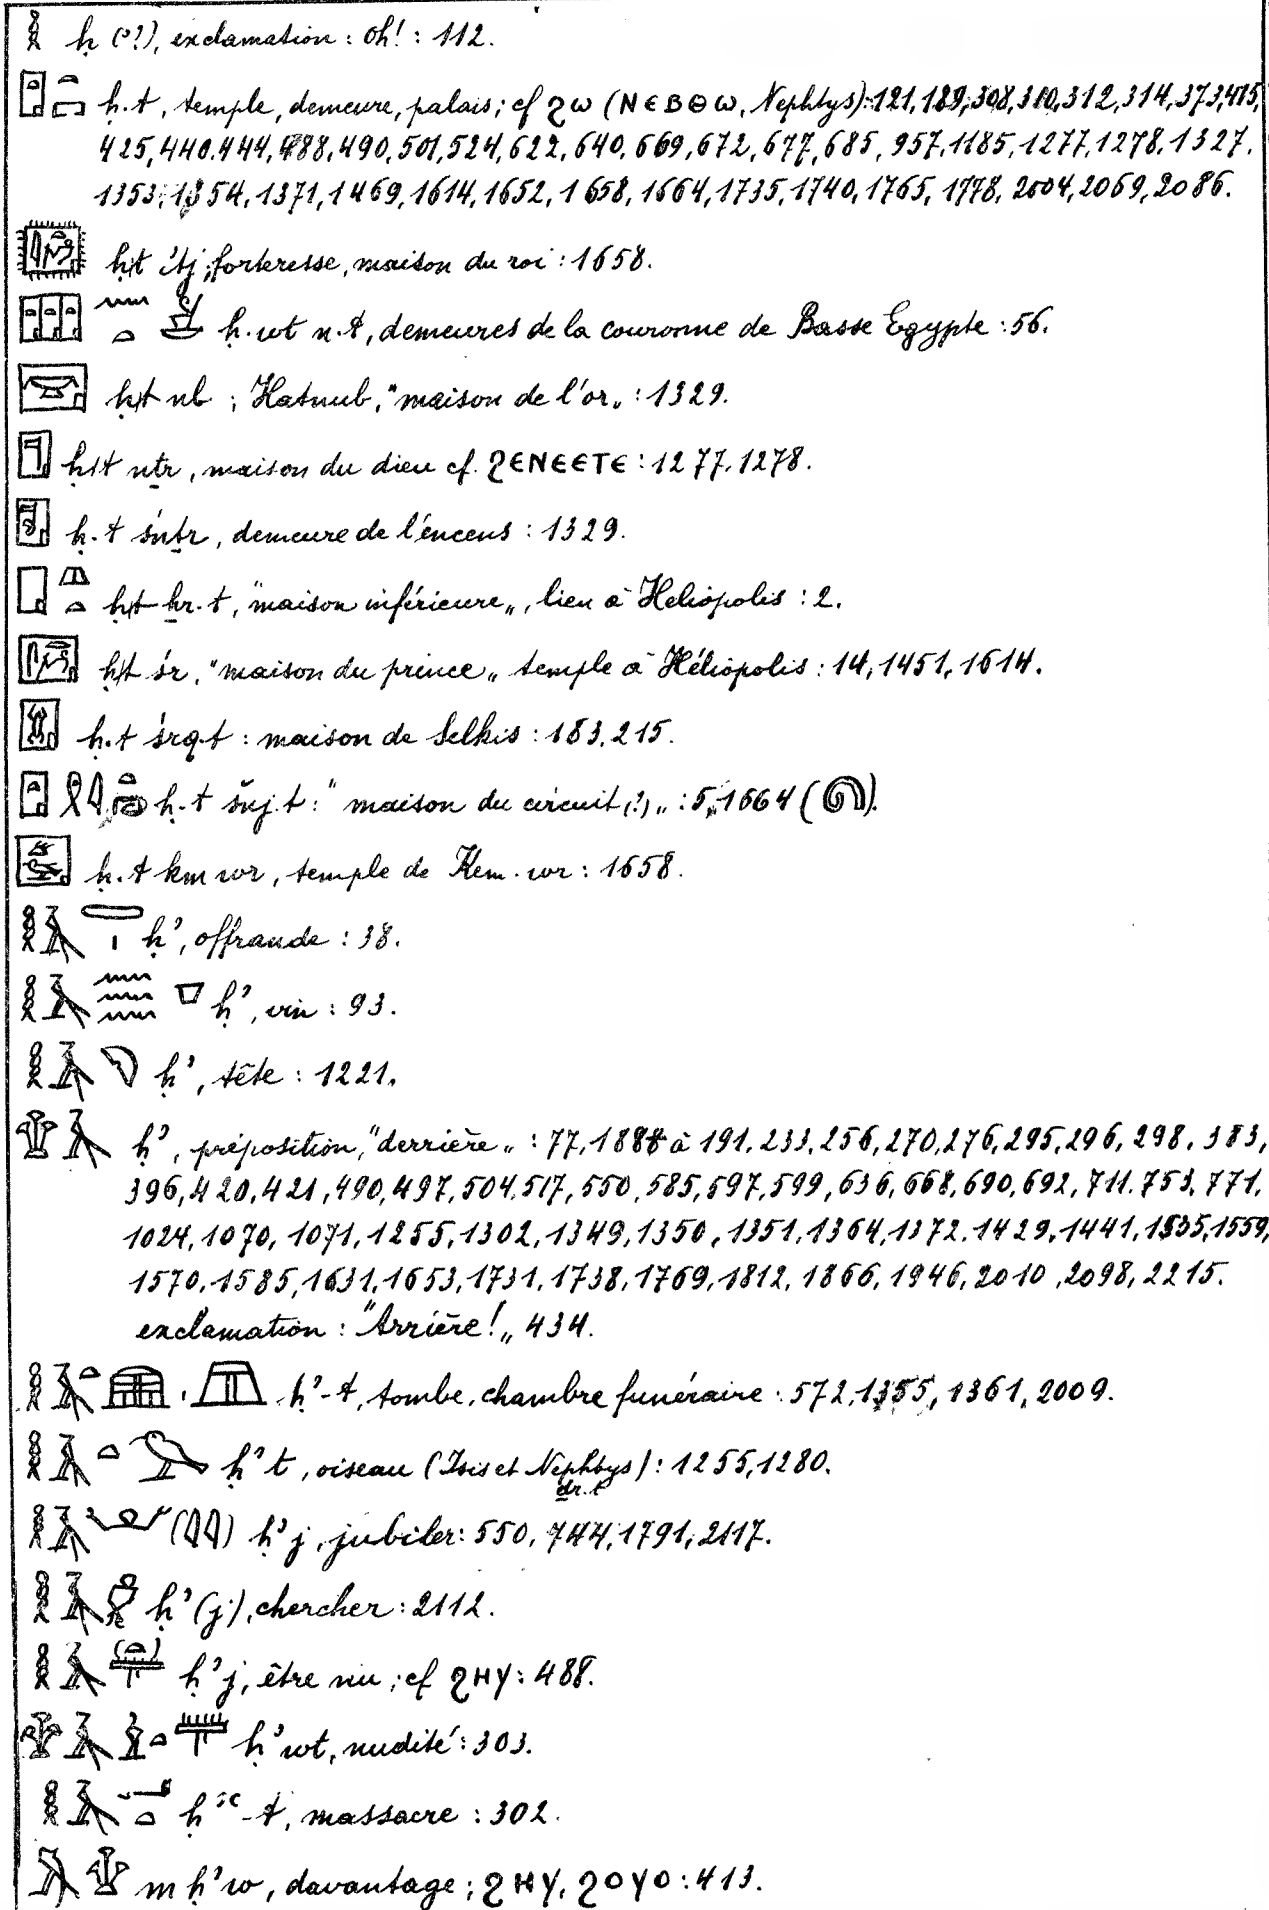 ḥ (?!), exclamation : oh! : 112.
ḥ.t, temple, demeure, palais; cf ϩω (ΝЄΒΘω, Nephtys): 121, 189, 308, 310, 312, 314, 373, 415,
425, 440, 444, 488, 490, 501, 524, 622, 640, 669, 672, 677, 685, 957, 1185, 1277, 1278, 1327,
1353, 1354, 1371, 1469, 1614, 1652, 1658, 1664, 1735, 1740, 1765, 1778, 2004, 2069, 2086.
ḥ.t ’tj; forteresse, maison du roi : 1658.
ḥ.wt n.t, demeures de la couronne de Basse Egypte : 56.
ḥ.t nb ; Hatnub, "maison de l'or„ : 1329.
ḥ.t nṯr, maison du dieu cf. ϩЄΝЄЄΤЄ : 1277, 1278.
ḥ.t śnṯr, demeure de l'encens : 1329.
ḥ.t ẖr.t, "maison inférieure„, lieu à Heliopolis : 2.
ḥ.t śr, "maison du prince„ temple à Héliopolis : 14, 1451, 1614.
ḥ.t śrq.t : maison de Selkis : 183, 215.
ḥ.t šnj.t : "maison du circuit (?)„ : 5, 1664 ( ).
ḥ.t km wr, temple de Kem-wr : 1658.
ḥ’, offrande : 38.
ḥ’, vin : 93.
ḥ’, tête : 1221.
ḥ’, préposition, "derrière„ : 77, 188 à 191, 233, 256, 270, 276, 295, 296, 298, 383,
396, 420, 421, 490, 497, 504, 517, 550, 585, 597, 599, 636, 668, 690, 692, 711, 753, 771,
1024, 1070, 1071, 1255, 1302, 1349, 1350, 1351, 1364, 1372, 1429, 1441, 1535, 1559,
1570, 1585, 1631, 1653, 1731, 1738, 1769, 1812, 1866, 1946, 2010, 2098, 2215.
exclamation : "Arrière!„ 434.
ḥ’-t, tombe, chambre funéraire : 572, 1355, 1361, 2009.
ḥ’t, oiseau (Isis et Nephtys) : 1255, 1280.
ḏr.t
ḥ’j, jubiler : 550, 744, 1791, 2117.
ḥ’(j), chercher : 2112.
ḥ’j, être nu ; cf ϩΗΥ : 488.
ḥ’wt, nudité : 303.
ḥ’ʿ-t, massacre : 302.
m ḥ’w, davantage ; ϩΗΥ, ϩΟΥΟ : 413.